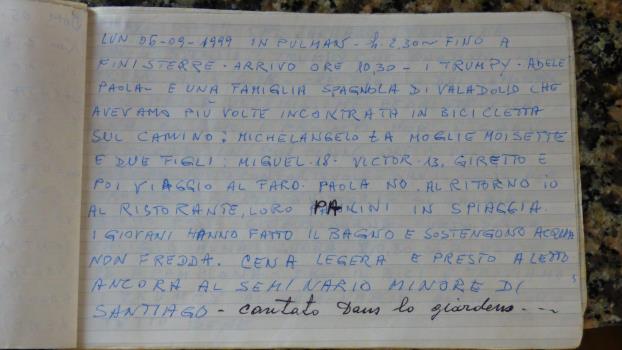 LUN 06-09-1999 IN PULMAN - h. 2,30~ FINO A
FINISTERRE. ARRIVO ORE 10,30 - I TRUMPY. ADELE
PAOLA - E UNA FAMIGLIA SPAGNOLA DI VALADOLID CHE
AVEVAMO PIÙ VOLTE INCONTRATA IN BICICLETTA
SUL CAMINO: MICHELANGELO LA MOGLIE MOISETTE
E DUE FIGLI: MIGUEL.18. VICTOR.13. GIRETTO E
POI VIAGGIO AL FARO. PAOLA NO. AL RITORNO IO
AL RISTORANTE, LORO PANINI IN SPIAGGIA.
I GIOVANI HANNO FATTO IL BAGNO E SOSTENGONO ACQUA
NON FREDDA. CENA LEGERA E PRESTO A LETTO
ANCORA AL SEMINARIO MINORE DI
SANTIAGO - cantato dans lo giardens ---